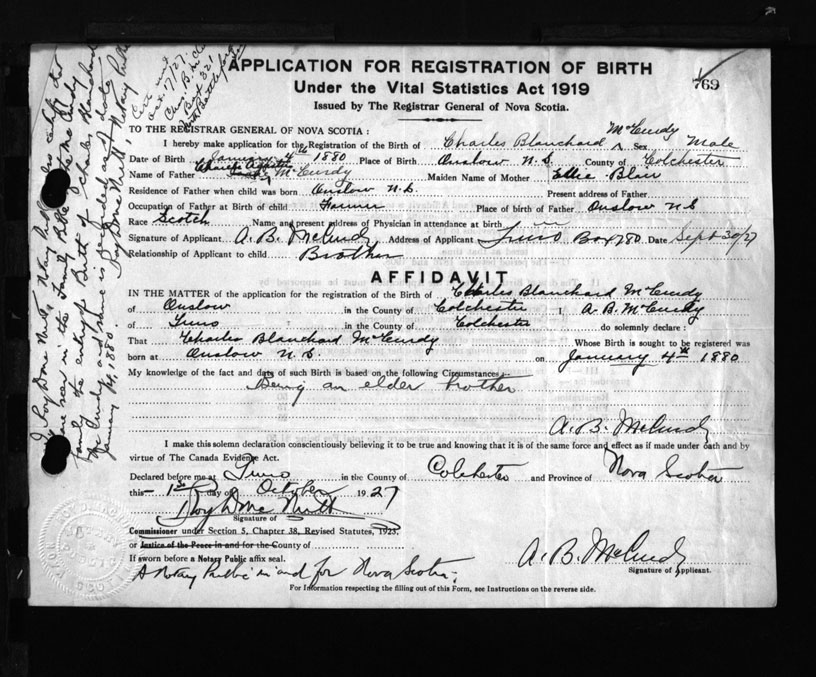 APPLICATION FOR REGISTRATION OF BIRTH
769
Under the Vital Statistics Act 1919
Issued by The Registrar General of Nova Scotia.
TO THE REGISTRAR GENERAL OF NOVA SCOTIA :
I hereby make application for the Registration of the Birth of Charles Blanchard McCurdy Sex Male
Date of Birth January 4th 1880 Place of Birth Onslow N.S. County of Colchester
Name of Father McCurdy Maiden Name of Mother Ellie Blair
Residence of Father when child was born Onslow N.S. Present address of Father
Occupation of Father at Birth of child Farmer Place of birth of Father Onslow N.S
Race Scotch Name and present address of Physician in attendance at birth
Signature of Applicant A. B. McCurdy Address of Applicant Truro Box 780 Date Sept 30/27
Relationship of Applicant to child Brother
AFFIDAVIT
IN THE MATTER of the application for the registration of the Birth of Charles Blanchard McCurdy
of Onslow in the County of Colchester I A. B. McCurdy
of Truro in the County of Colchester do solemnly declare :
That Charles Blanchard McCurdy Whose Birth is sought to be registered was
born at Onslow N.S. on January 4th 1880
My knowledge of the fact and date of such Birth is based on the following Circumstances:
Being an elder brother
A. B. McCurdy
I make this solemn declaration conscientiously believing it to be true and knowing that it is of the same force and effect as if made under oath and by
virtue of The Canada Evidence Act.
Declared before me at Truro in the County of Colchester and Province of Nova Scotia
this 1st day of October 1927
Signature of
Commissioner under Section 5, Chapter 38, Revised Statutes, 1923,
or Justice of the Peace in and for the County of
If sworn before a Notary Public affix seal.
A. B. McCurdy
Signature of Applicant.
A Notary Public in and for Nova Scotia
For Information respecting the filling out of this Form, see Instructions on the reverse side.